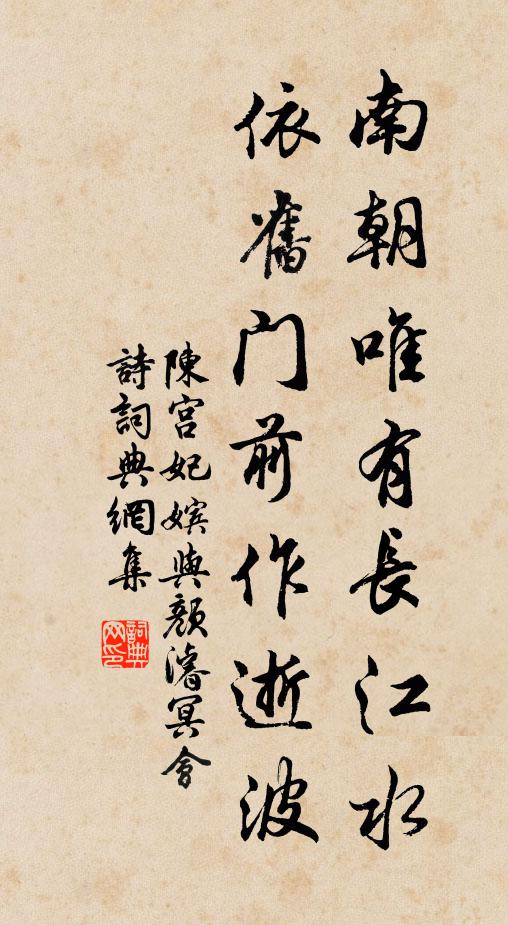 南朝唯有長江水
依舊門前作逝波
陳宮妃嬪與顏濬冥會
詩詞典網集
詞典網印